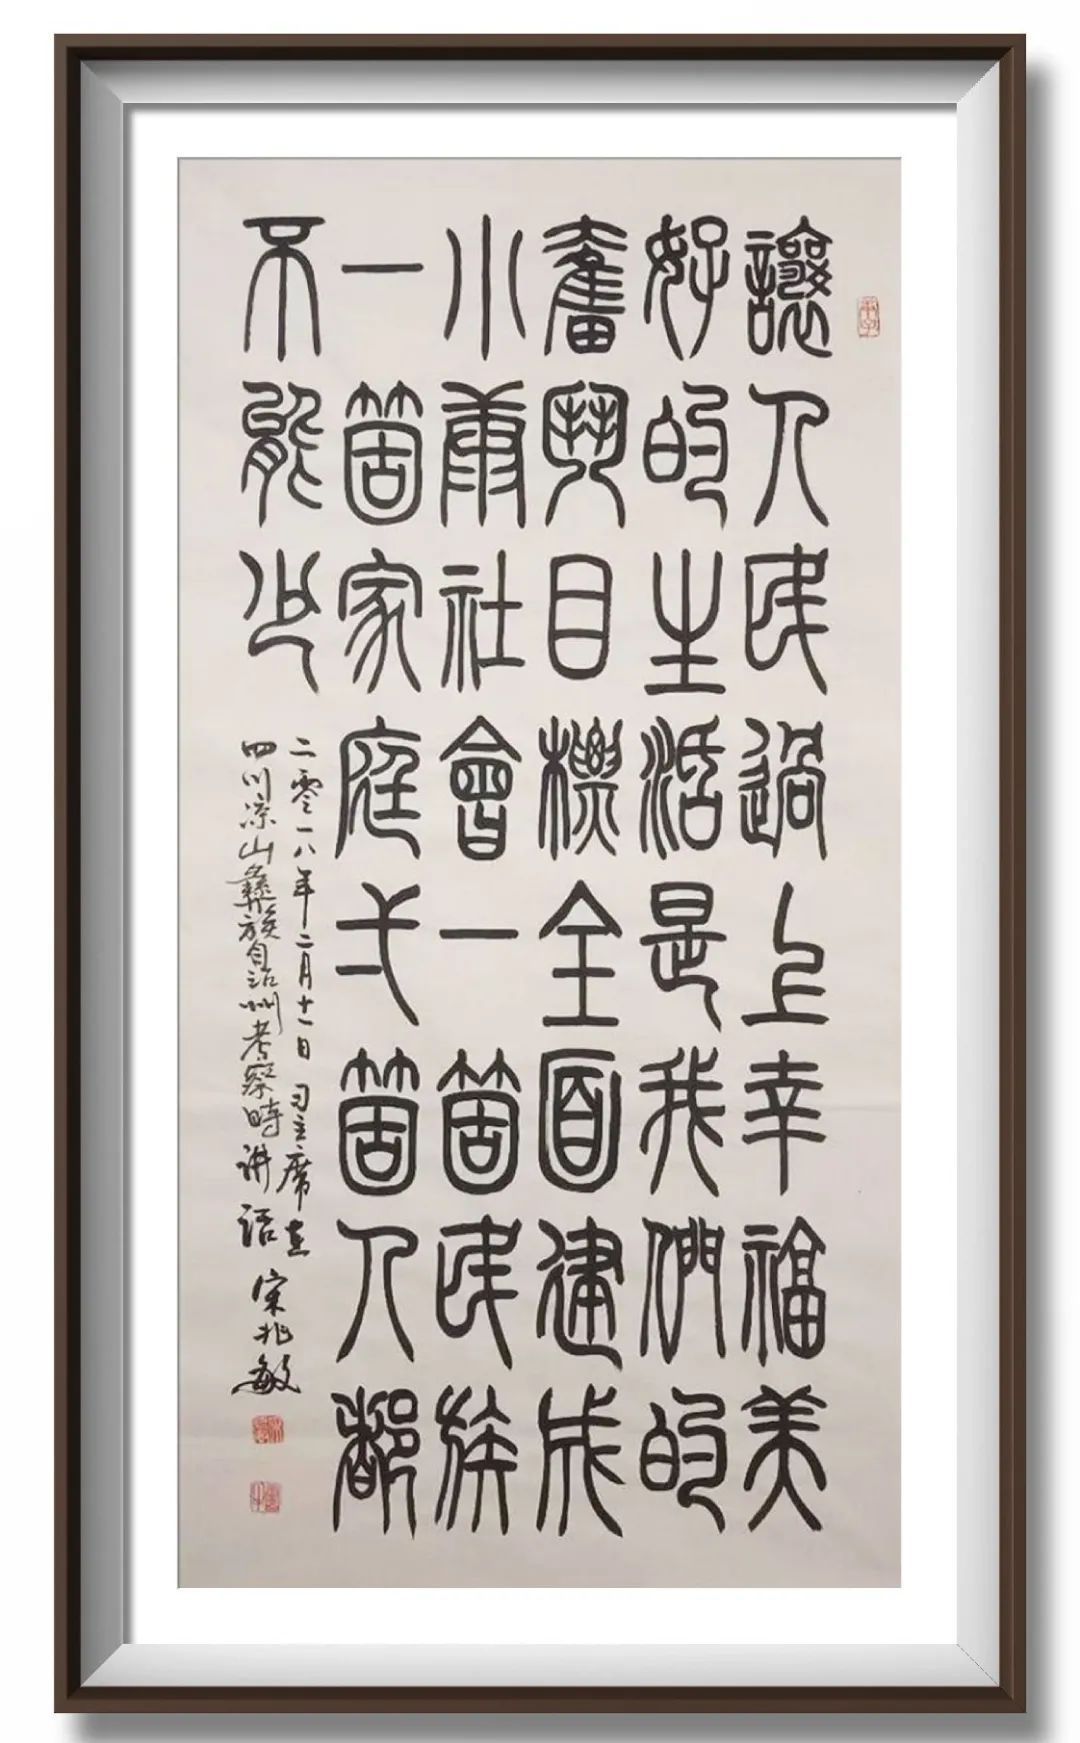 讓人民過上幸福美
好的生活是我們的
奮鬥目標全面建成
小康社會一箇民族
一箇家庭弌箇人都
不能少
二零一八年二月十一日习主席在
四川凉山彝族自治州考察時讲话
宋兆敏